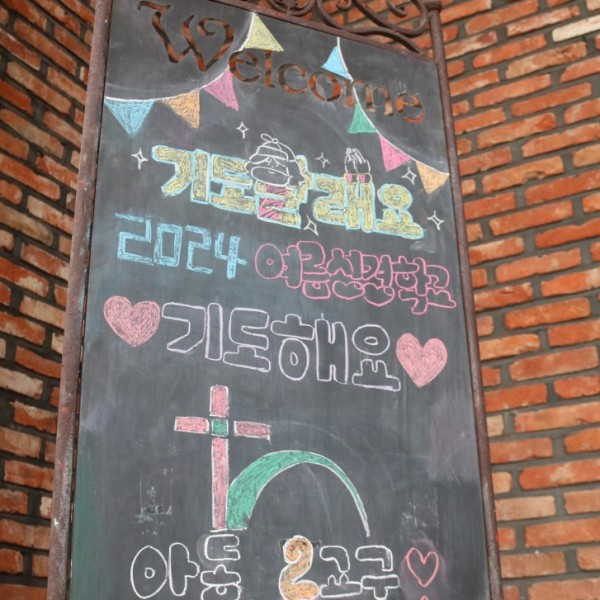 Welcome
기도할래요
2024 여름성경학교
기도해요
아동2교구